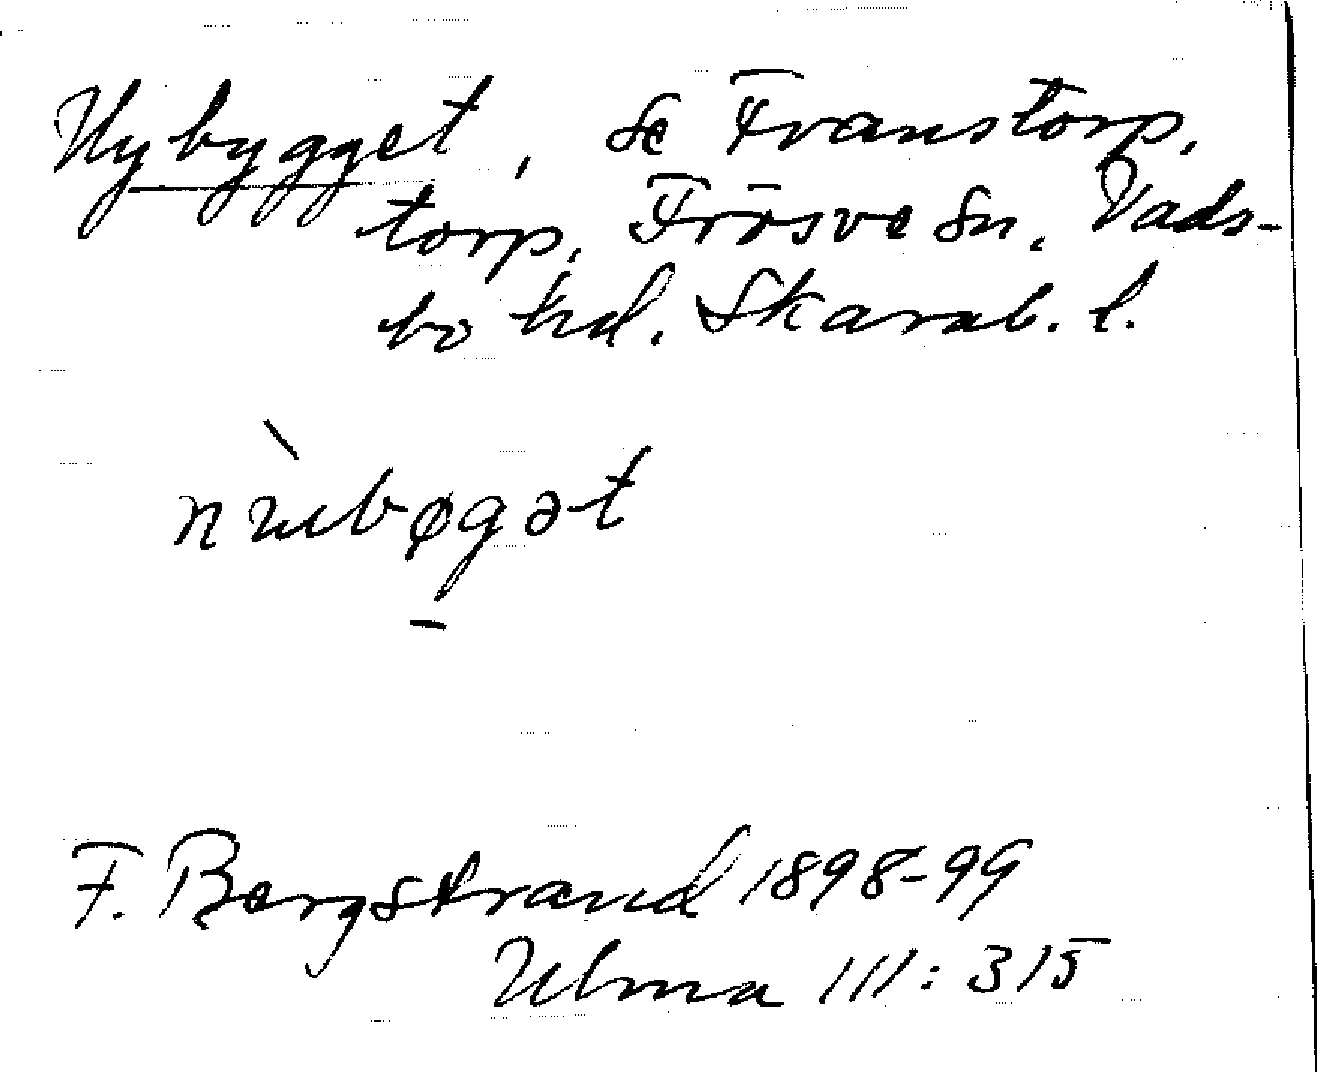 Nybygget, se Franstorp,
torp, Frösve sn, Vads-
bo hd. Skarab. l.
nɯbøgət
F. Bergstrand 1898-99
Ulma 111:315